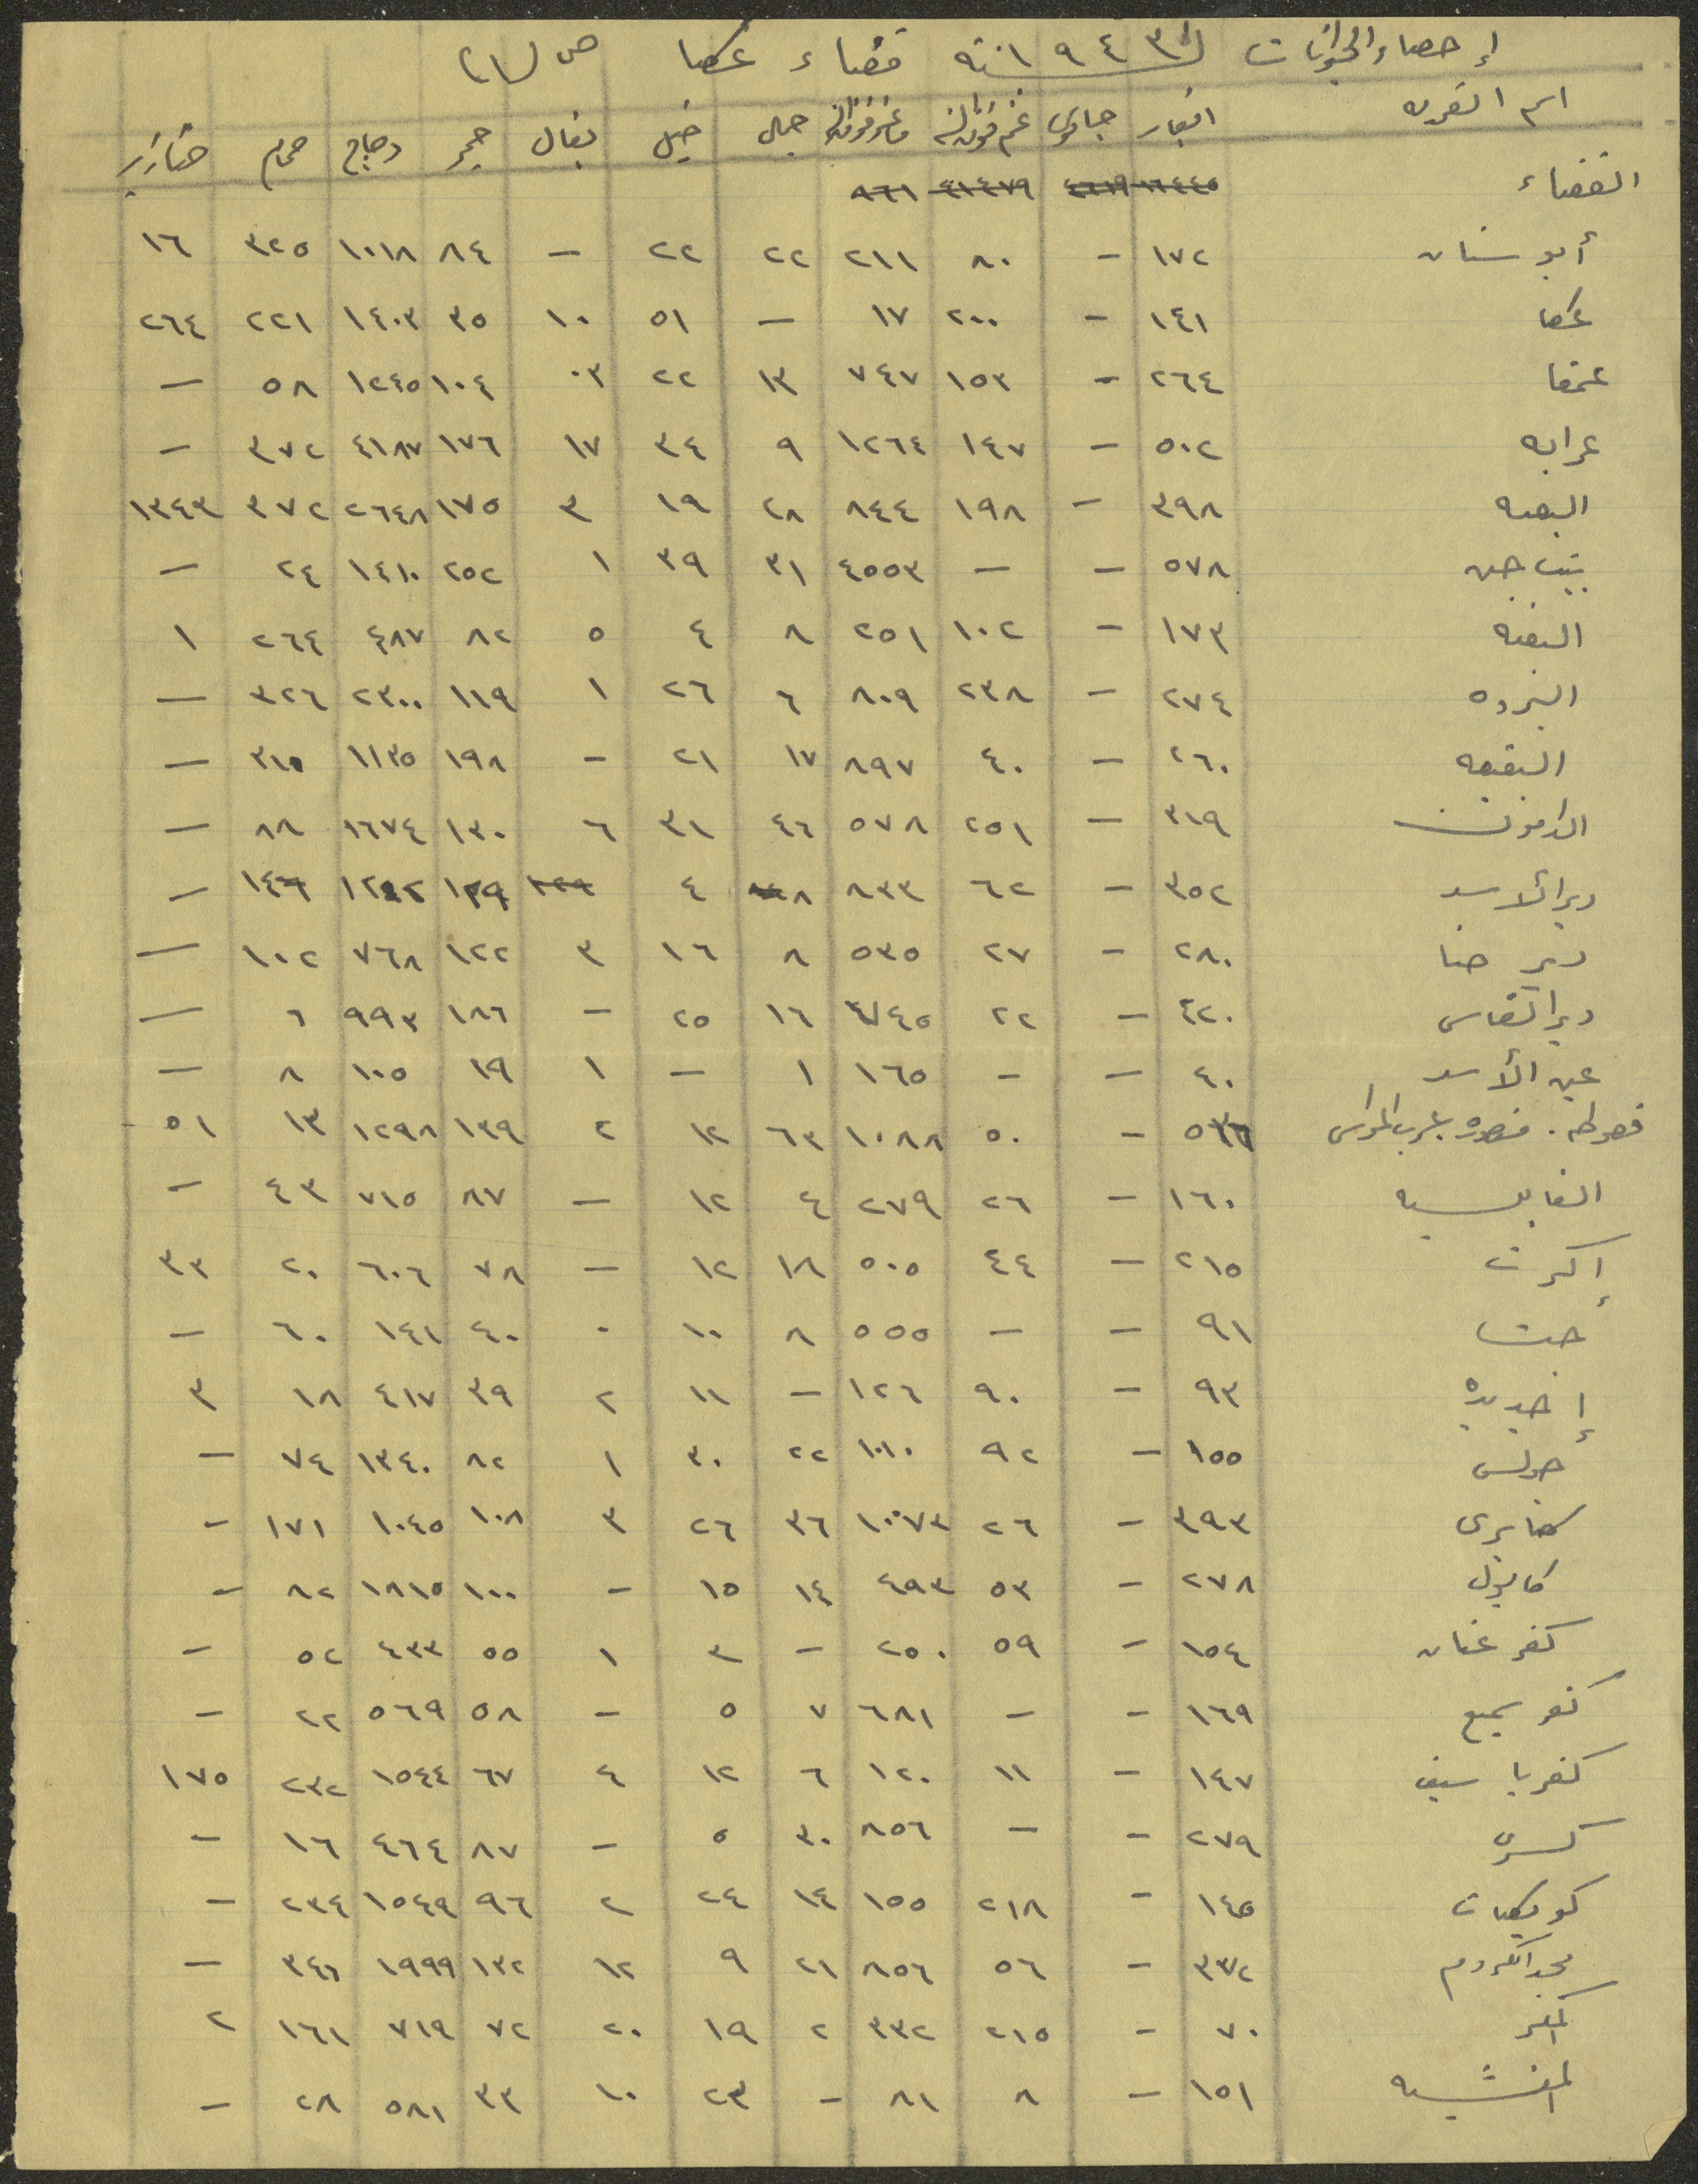 إحصاء الحيوانات لسنة ١٩٤٣ قضاء عكا ص (١)
اسم القرية ابقار جاموس غنم فوق سنة ماعز فوق سنة جمال خيل بغال حمير دجاج حمام خنازير
القضاء ١٦٤٤٥ ٤٦١٩ ٤١٤٧٩ ٩٦١
أبو سنان ١٧٢ - ٨٠ ٢١١ ٢٢ ٢٢ - ٨٤ ١٠١٨ ٣٢٥ ١٦
عكا ١٤١ - ٢٠٠ ١٧ - ٥١ ١٠ ٣٥ ١٤٠٣ ٢٢١ ٢٦٤
عمقا ٢٦٤ - ١٥٣ ٧٤٧ ١٣ ٢٢ ٠٣ ١٠٤ ١٢٤٥ ٥٨ -
عرابه ٥٠٢ - ١٤٧ ١٢٦٤ ٩ ٣٤ ١٧ ١٧٦ ٤١٨٧ ٣٧٢ -
البصه ٣٩٨ - ١٩٨ ٨٤٤ ٢٨ ١٩ ٣ ١٧٥ ٢٦٤٨ ٣٧٢ ١٣٤٣
بيت جن ٥٧٨ - - ٤٥٥٣ ٣١ ٣٩ ١ ٢٥٢ ١٤١٠ ٢٤ -
البعنه ١٧٣ - ١٠٢ ٢٥١ ٨ ٤ ٥ ٨٢ ٤٨٧ ٢٦٤ ١
البروه ٢٧٤ - ٢٣٨ ٨٠٩ ٦ ٢٦ ١ ١١٩ ٢٣٠٠ ٣٢٦ -
البقيعه ٢٦٠ - ٤٠ ٨٩٧ ١٧ ٢١ - ١٩٨ ١١٣٥ ٣١٥ -
الدامون ٣١٩ - ٢٥١ ٥٧٨ ٤٦ ٣١ ٦ ١٣٠ ١٦٧٤ ٨٨ -
دير الأسد ٣٥٢ - ٦٢ ٨٣٣ ٨ ٤ ١٢٩ ١٢٩ ١٤٦ -
دير حنا ٢٨٠ - ٢٧ ٥٣٥ ٨ ١٦ ٣ ١٢٢ ٧٦٨ ١٠٢ -
دير القاسي ٤٢٠ - ٢٢ ١٦ ٢٥ - ١٨٦ ٩٩٣ ٦ -
عين الأسد ٤٠ - - ١٦٥ ١ - ١ ١٩ ١٠٥ ٨ -
فسوطه . منصوره عرب المواسي - ٥٠ ١٠٨٨ ٦٣ ١٢ ٢ ١٣٩ ١٢٩٨ ١٣ ٥١
الغابسيه ١٦٠ - ٢٦ ٢٧٩ ٤ ١٢ - ٨٧ ٧١٥ ٤٣ -
إكرت ٢١٥ - ٤٤ ٥٠٥ ١٨ ١٢ - ٧٨ ٦٠٦ ٢٠ ٣٣
جت ٩١ - - ٥٥٥ ٨ ١٠ ٠ ٤٠ ١٤١ ٦٠ -
إجديده ٩٣ - ٩٠ ١٢٦ - ١١ ٢ ٣٩ ٤١٧ ١٨ ٣
جولس ١٥٥ - ٩٢ ١٠١٠ ٢٢ ٣٠ ١ ٨٢ ١٣٤٠ ٧٤ -
كابري ٣٩٣ - ٢٦ ١٠٧٣ ٣٦ ٢٦ ٣ ١٠٨ ١٠٤٥ ١٧١ -
كابول ٢٧٨ - ٥٣ ٤٩٣ ١٤ ١٥ - ١٠٠ ١٨١٥ ٨٢ -
كفر عنان ١٥٤ - ٥٩ ٢٥٠ - ٣ ١ ٥٥ ٤٣٣ ٥٢ -
كفر سميع ١٦٩ - - ٦٨١ ٧ ٥ - ٥٨ ٥٦٩ ٢٢ -
كفر ياسيف ١٤٧ - ١١ ١٢٠ ٦ ١٢ ٤ ٦٧ ١٥٤٤ ٢٣٢ ١٧٥
كسرى ٢٧٩ - - ٨٥٦ ٣٠ ٥ - ٨٧ ٤٦٤ ١٦ -
كويكات ١٤٥ - ٢١٨ ١٥٥ ١٤ ٢٤ ٢ ٩٦ ١٥٤٩ ٢٣٤ -
مجد الكروم ٣٣٢ - ٥٦ ٨٥٦ ٢١ ٩ ١٢ ١٣٢ ١٩٩٩ ٣٤٦ -
المكر ٧٠ - ٢١٥ ٣٣٢ ٢ ١٩ ٢٠ ٧٢ ٧١٩ ١٦١ ٢
المنشيه ١٥١ - ٨ ٨١ - ٢٣ ١٠ ٣٣ ٥٨١ ٢٨ -